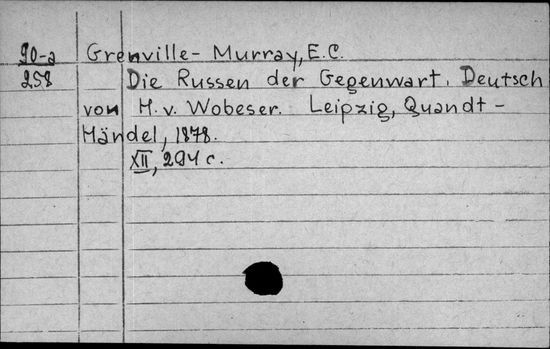 90-a Grenville-Murray, E.C.
258 Die Russen der Gegenwart. Deutsch
von H. v. Wobeser. Leipzig, Quandt-
Händel, 1878.
XII, 294 c.